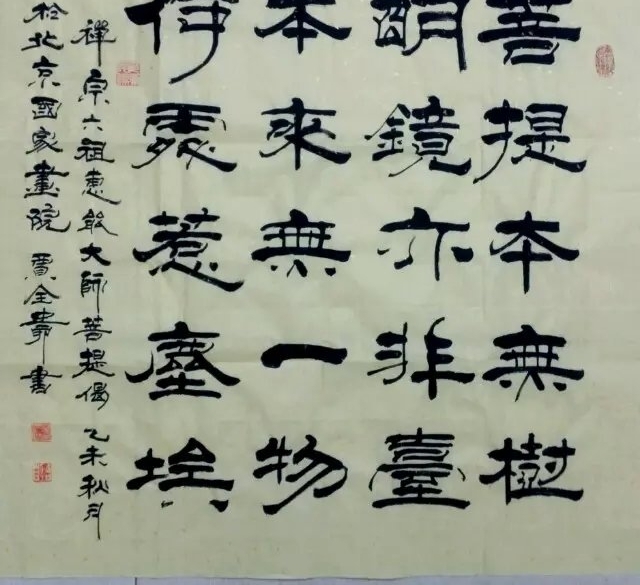 菩提本無樹
明鏡亦非臺
本來無一物
何處惹塵埃
禪宗六祖惠能大師菩提偈 乙未秋月
於北京國家畫院 賈全書